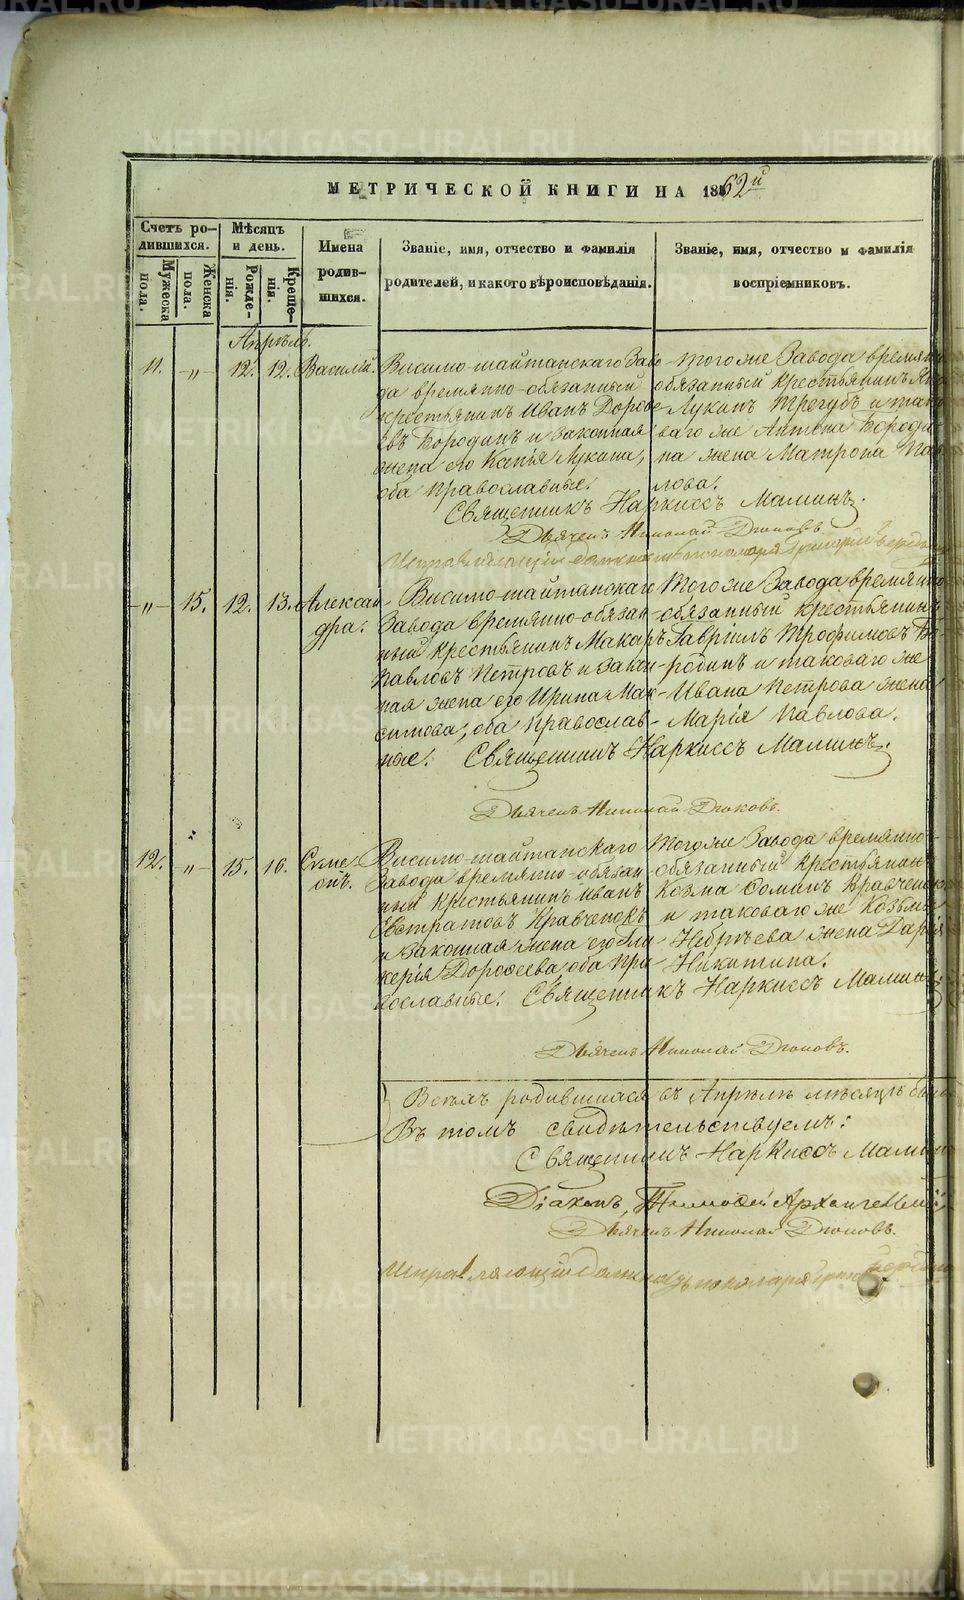 МЕТРИЧЕСКОЙ КНИГИ НА 1862й
Счетъ ро-
дившихся.
Мужеска
пола.
Женска
пола.
Мѣсяцъ
и день.
Рожде-
нія.
Креще-
нія.
Имена
родив-
шихся.
Званіе, имя, отчество и фамилія
родителей, и какого вѣроисповѣданія.
Званіе, имя, отчество и фамилія
воспріемниковъ.
Апрѣль.
11. -„- 12. 12. Василій.
Висимо-шайтанскаго Заво-
да временно-обязанный
крестьянинъ Иванъ Дорофе-
евъ Бородинъ и законная
жена его Ксенія Лукина,
оба православные.
Тогоже Завода временно
обязанный крестьянинъ
Лукинъ Трегубъ и тако-
ваго же Антона Бороди-
на жена Матрона Пав-
лова.
Священникъ Наркиссъ Маминъ.
Дьячекъ Николай Дюковъ
Исправляющій должность пономаря Григорій
-„- 15. 12. 13. Алексан-
дра.
Висимо-шайтанскаго
Завода временно-обязан-
ный крестьянинъ Макаръ
Павловъ Петровъ и закон-
ная жена его Ирина Мак-
симова, оба православ-
ные.
Тогоже Завода временно
-обязанный крестьянинъ
Гавріилъ Трофимовъ Бо-
родинъ и таковаго же
Ивана Петрова жена
Марія Павлова.
Священникъ Наркиссъ Маминъ.
Дьячекъ Николай Дюковъ.
12. -„- 15. 16. Симе-
онъ.
Висимо-шайтанскаго
Завода временно-обязан-
ный крестьянинъ Иванъ
Евстратовъ Кравченокъ
и законная жена его Гли-
керія Дорофеева, оба пра-
вославные.
Тогоже Завода временно-
обязанный крестьянинъ
Козма Соминъ Кравченокъ
и таковаго же Козьмы
жена Дарія
Никитина.
Священникъ Наркиссъ Маминъ.
Дьячекъ Николай Дюковъ.
Всѣхъ родившихся въ Апрѣлѣ мѣсяцѣ
Въ томъ свидѣтельствуемъ:
Священникъ Наркиссъ Маминъ
Діаконъ, Тимофей
Дьячекъ Николай Дюковъ.
Исправляющій должность пономаря
METRIKI.GASO-URAL.RU